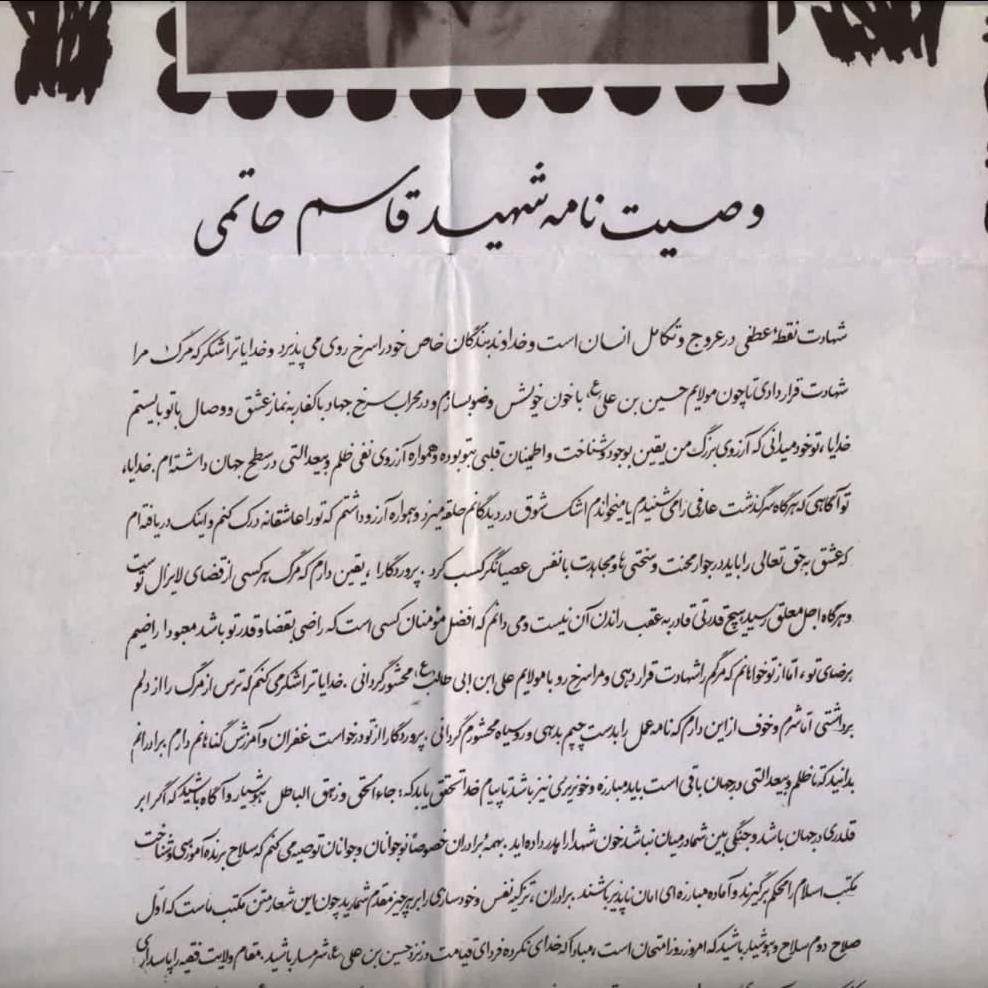 وصیت نامه شهید قاسم حاتمی
شهادت نقطهٔ عطفی در عروج و تکامل انسان است و خداوند بندگان خاص خود را سرخ روی می پذیرد و خدایا ترا شکر که مرگ مرا
شهادت قرار دادی تا چون مولایم حسین بن علی ع، با خون خویش وضو بسازم و در محراب سرخ جهاد با کفار به نماز عشق و وصال با تو بایستم
خدایا، تو خود میدانی که آرزوی بزرگ من یقین بوجود و شناخت و اطمینان قلبی بتو بوده و همواره آرزوی نفی ظلم و بیعدالتی در سطح جهان داشته‌ام. خدایا،
تو آگاهی که هر گاه سرگذشت عارفی را می شنیدم یا میخواندم اشک شوق در دیدگانم حلقه میزد و همواره آرزو داشتم که تو را عاشقانه درک کنم و اینک دریافته‌ام
که عشق به حق تعالی را باید در جوار محنت و سختی ها و مجاهدت با نفس عصیانگر کسب کرد. پروردگارا، یقین دارم که مرگ هر کسی از قضای لایزال توست
و هر گاه اجل معلق رسید هیچ قدرتی قادر به عقب راندن آن نیست و می دانم که افضل مؤمنان کسی است که راضی بقضا و قدر تو باشد معبودا راضیم
برضای تو، اما از تو خواهانم که مرگم را شهادت قرار دهی و مرا سرخ رو با مولایم علی ابن ابی طالب ع، محشور گردانی. خدایا ترا شکر می کنم که ترس از مرگ را از دلم
برداشتی اما شرم و خوف از این دارم که نامه عمل را بدست چپم بدهی و رو سیاه محشورم گردانی. پروردگارا از تو درخواست غفران و آمرزش گناهانم دارم برادرانم
بدانید که تا ظلم و بیعدالتی در جهان باقی است باید مبارزه و خونریزی نیز باشد تا پیام خدا تحقق یابد که: جاء الحق و زهق الباطل هوشیار و آگاه باشید که اگر ابر
قلدری در جهان باشد و جنگی بین شما در میان نباشد خون شهدا را هدر داده اید. بهمهٔ برادران خصوصاً نوجوانان و جوانان توصیه می کنم که سلاح برنده آموزشی و شناخت
مکتب اسلام را محکم برگیرند و آماده مبارزه ای امان ناپذیر باشند برادران، تزکیه نفس و خودسازی را بر هر چیز مقدم شمارید چون این شعار متن مکتب ماست که اول
صلاح دوم سلاح و هوشیار باشید که امروز روز امتحان است، مبادا که خدای نکرده فردای قیامت در نزد حسین بن علی ع، شرمسار باشید. مقام ولایت فقیه را پاسداری